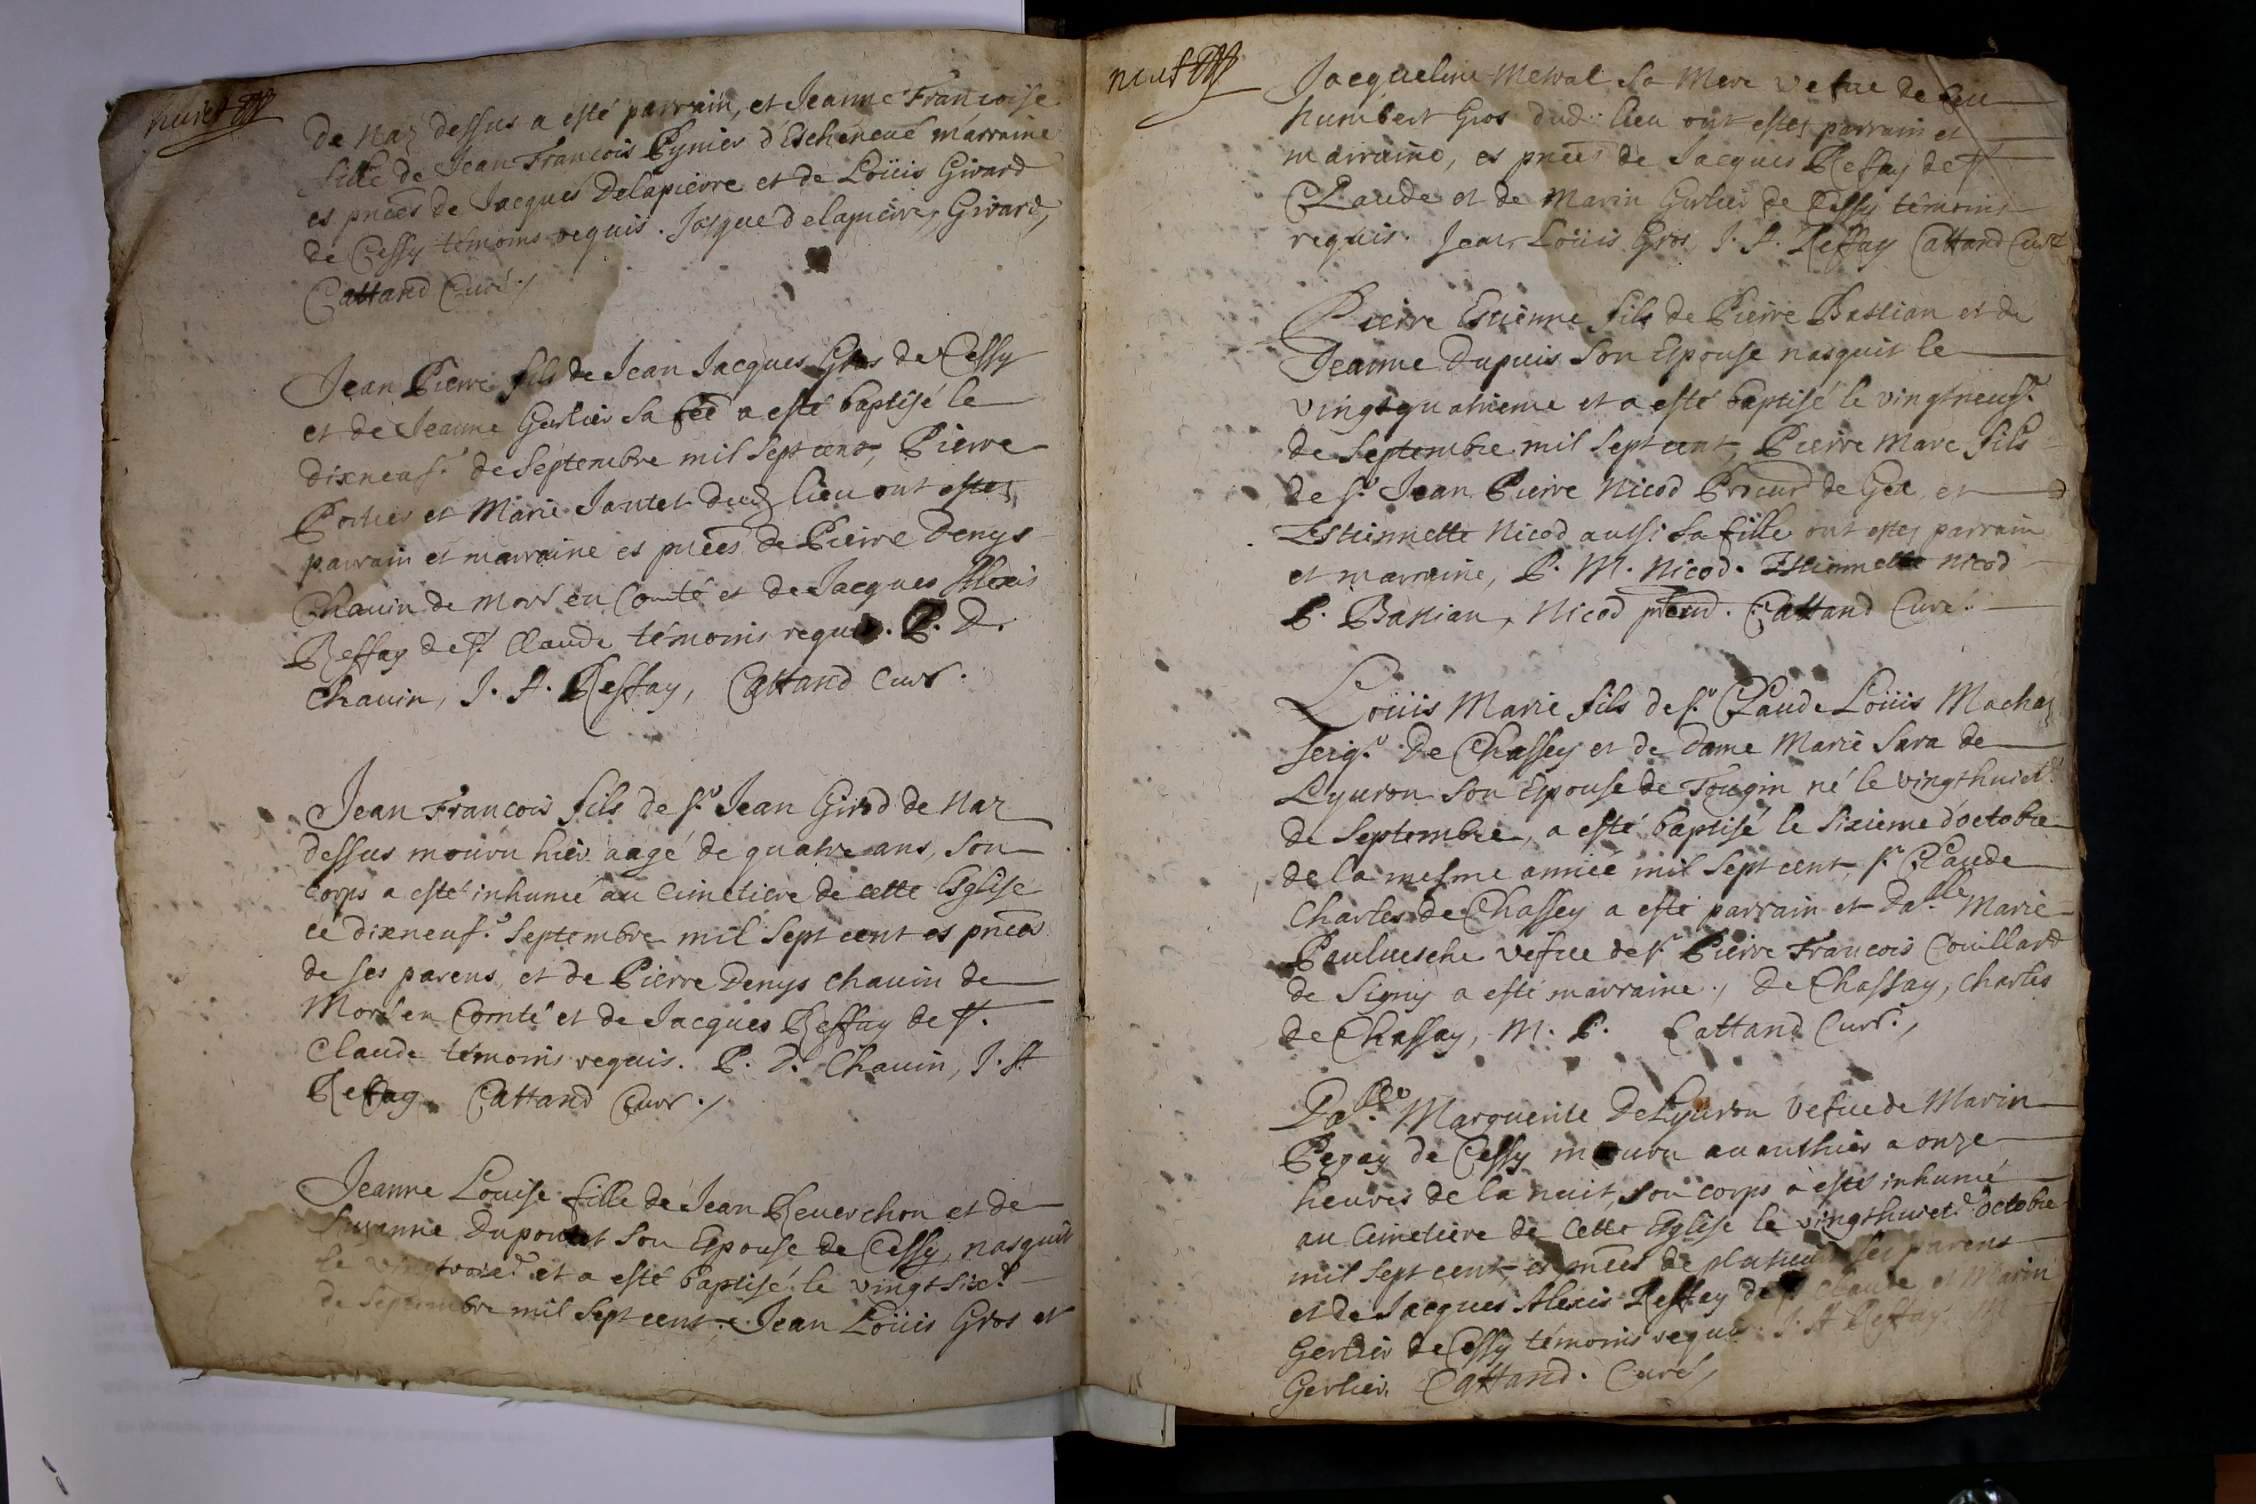 huict
de Naz dessus a esté parrain, et Jeanne Françoise
fille de Jean François Pynier d'Escheneué marraine
es pnces de Jacques Delapierre et de Loüis Girard
de Cessy témoins requis. Jasque delapierre, Girard,
Cattand Curé./
Jean Pierre fils de Jean Jacques Gros de Cessy
et de Jeanne Gerlier sa fée a esté baptisé le
dixneuf.e de Septembre mil sept cent, Pierre
Portier et Marie Jantet dud lieu ont estez
parrain et marraine es pnces de Pierre Denys
Chauin de Mors en Comté et de Jacques Alexis
Reffay de St. Claude témoins requis. P. D.
Chauin, J. A. Reffay, Cattand Curé.
Jean François fils de sr. Jean Girod de Naz
dessus mouru hier aagé de quatre ans, son
corps a esté inhumé au Cimetiere de cette Eglise
ce dixneuf.e Septembre mil sept cent es pnces
de ses parens, et de Pierre Denys Chauin de
Mors en Comté et de Jacques Reffay de St.
Claude témoins requis. P. D. Chauin, J. A.
Reffay. Cattand Curé./
Jeanne Louise fille de Jean Reuerchon et de
Susanne Dupontet son Espouse de Cessy, nasquit
le vingtroise.e et a esté baptisé le vingtsix.e
de Septembre mil sept cent. Jean Loüis Gros et
neuf
Jacqueline Mewal sa Mere vefue de feu
humbert Gros dud. lieu ont estez parrain et
marraine, es pnces de Jacques Reffay de St.
Claude et de Marin Gerlier de Cessy témoins
requis. Jean Loüis Gros, J. A. Reffay Cattand Curé
Pierre Estienne fils de Pierre Bastian et de
Jeanne Dupuis son Espouse nasquit le
vingtquatrieme et a esté baptisé le vingtneuf.e
de Septembre mil sept cent, Pierre Marc fils
de sr. Jean Pierre Nicod Procurd de Gex, et
Estiennette Nicod aussi sa fille ont estez parrain
et marraine, P. M. Nicod. Estiennette Nicod
P. Bastian, Nicod Cattand Curé.
Loüis Marie fils de sr. Claude Loüis Machaz
seigr. De Chassey et de Dame Marie Sara de
Lyuron son Espouse de Tougin né le vingthuict.e
de Septembre, a esté baptisé le sixieme d'octobre
de la mesme année mil sept cent, sr. Claude
Charles de Chassey a esté parrain et Da.lle Marie
Pauluesche vefue de sr. Pierre François Couillard
de Signy a esté marraine., De Chassay, Charles
de Chassay, M. P. Cattand Curé.,
Da.lle Marguerite De Lyuron vefue de Marin
Pegay de Cessy mouru auanthier a onze
heures de la nuit, son corps a esté inhumé
au Cimetiere de cette Eglise le vingthuict.e octobre
mil sept cent, es pnces de plusieurs ses parens
et de Jacques Alexis Reffay de St. Claude et Marin
Gerlier de Cessy témoins requis. J. A. Reffay. M
Gerlier. Cattand. Curé,